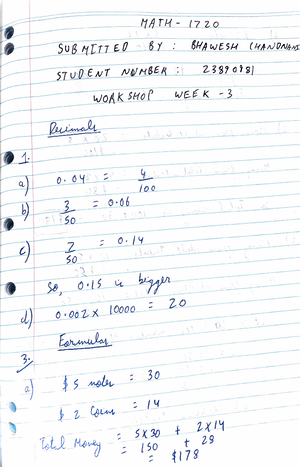 MATH - 1720
SUBMITTED BY : BHAWESH CHANDNANI
STUDENT NUMBER : 23890981
WORKSHOP WEEK - 3
Decimals
1.
a) 0.04 = 4/100
b) 3/50 = 0.06
c) 7/50 = 0.14
So, 0.15 is bigger
d) 0.002 x 10000 = 20
Formulas
3.
a) $5 notes = 30
$2 Coins = 14
Total Money = 5x30 + 2x14
= 150 + 28
= $178